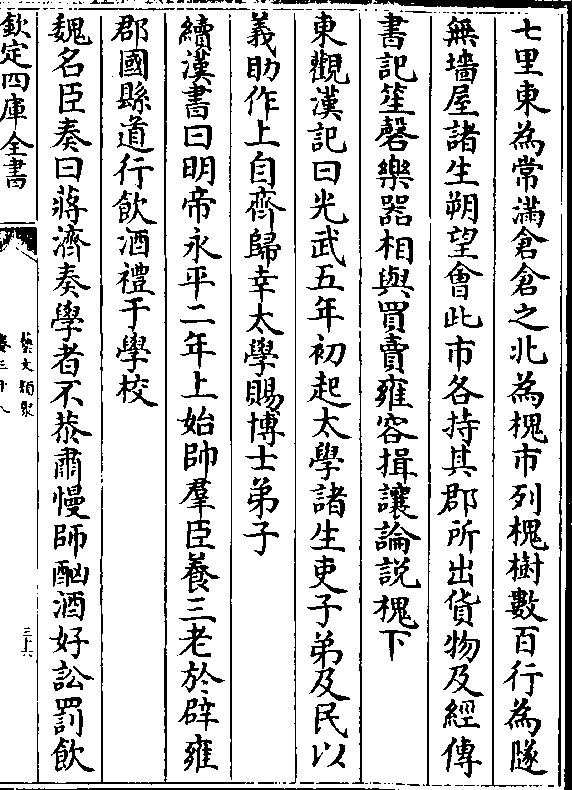 七里東為常滿倉倉之北為槐市列槐樹數百行為隧
無墻屋諸生朔望會此市各持其郡所出貨物及經傳
書記笙磬樂器相與買賣雍容揖讓論説槐下
東觀漢記曰光武五年初起太學諸生吏子弟及民以
義助作上自齊歸幸太學賜博士弟子
續漢書曰明帝永平二年上始帥羣臣養三老於辟雍
郡國縣道行飲酒禮于學校
魏名臣奏曰蔣濟奏學者不恭肅慢師酗酒好訟罰飲
欽定四庫全書
藝文類聚
卷三十八